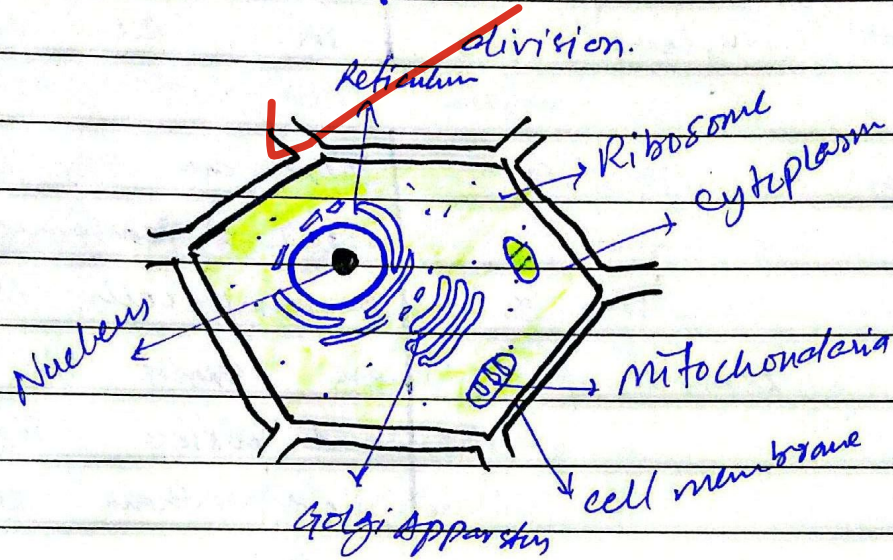 division.
Reticulum
Ribosome
cytoplasm
Nucleus
Mitochondaria
cell membrane
Golgi Apparatus